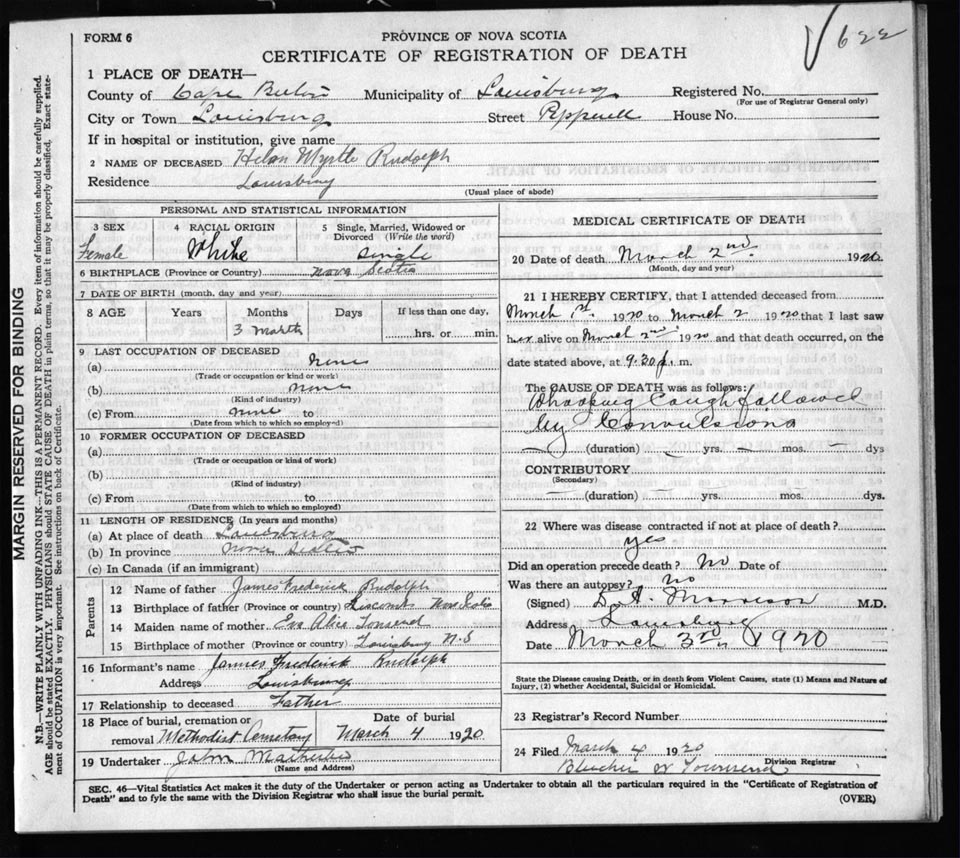 622
FORM 6
PROVINCE OF NOVA SCOTIA
CERTIFICATE OF REGISTRATION OF DEATH
1 PLACE OF DEATH—
County of Cape Breton Municipality of Louisburg Registered No.
(For use of Registrar General only)
City or Town Louisburg Street Pepperell House No.
If in hospital or institution, give name
2 NAME OF DECEASED Helen Myrtle Rudolph
Residence Louisburg
(Usual place of abode)
PERSONAL AND STATISTICAL INFORMATION
3 SEX 4 RACIAL ORIGIN 5 Single, Married, Widowed or Divorced (Write the word)
Female White Single
6 BIRTHPLACE (Province or Country) Nova Scotia
7 DATE OF BIRTH (month, day and year)
8 AGE Years Months Days If less than one day,
3 Months
hrs. or min.
9 LAST OCCUPATION OF DECEASED
(a) none
(Trade or occupation or kind of work)
(b) none
(Kind of industry)
(c) From none to
(Date from which to which so employed)
10 FORMER OCCUPATION OF DECEASED
(a)
(Trade or occupation or kind of work)
(b)
(Kind of industry)
(c) From to
(Date from which to which so employed)
11 LENGTH OF RESIDENCE (In years and months)
(a) At place of death Louisburg
(b) In province Nova Scotia
(c) In Canada (if an immigrant)
Parents
12 Name of father James Frederick Rudolph
13 Birthplace of father (Province or country) Liscomb Nova Scotia
14 Maiden name of mother Eva Alice Tonsend
15 Birthplace of mother (Province or country) Louisburg N.S
16 Informant's name James Frederick Rudolph
Address Louisburg
17 Relationship to deceased Father
18 Place of burial, cremation or removal Methodist Cemetary
Date of burial
March 4 1920
19 Undertaker John
(Name and Address)
MEDICAL CERTIFICATE OF DEATH
20 Date of death March 2nd 1920
(Month, day and year)
21 I HEREBY CERTIFY, that I attended deceased from
March 1st 1920 to March 2 1920 that I last saw
her alive on March 2nd 1920 and that death occurred, on the
date stated above, at 9.30 p. m.
The CAUSE OF DEATH was as follows:
Whooping Cough followed
by Convulsions
(duration) yrs. mos. dys
CONTRIBUTORY
(Secondary)
(duration) yrs. mos. dys.
22 Where was disease contracted if not at place of death?
yes
Did an operation precede death? No Date of
Was there an autopsy? No
(Signed) Morrison M.D.
Address Louisburg
Date March 3rd 1920
State the Disease causing Death, or in death from Violent Causes, state (1) Means and Nature of
Injury, (2) whether Accidental, Suicidal or Homicidal.
23 Registrar's Record Number
24 Filed March 4 1920
Townsend
Division Registrar
SEC. 46—Vital Statistics Act makes it the duty of the Undertaker or person acting as Undertaker to obtain all the particulars required in the "Certificate of Registration of
Death" and to fyle the same with the Division Registrar who shall issue the burial permit.
(OVER)
MARGIN RESERVED FOR BINDING
N.B.—WRITE PLAINLY WITH UNFADING INK—THIS IS A PERMANENT RECORD. Every item of information should be carefully supplied.
AGE should be stated EXACTLY. PHYSICIANS should STATE CAUSE OF DEATH in plain terms, so that it may be properly classified. Exact state-
ment of OCCUPATION is very important. See instructions on back of Certificate.